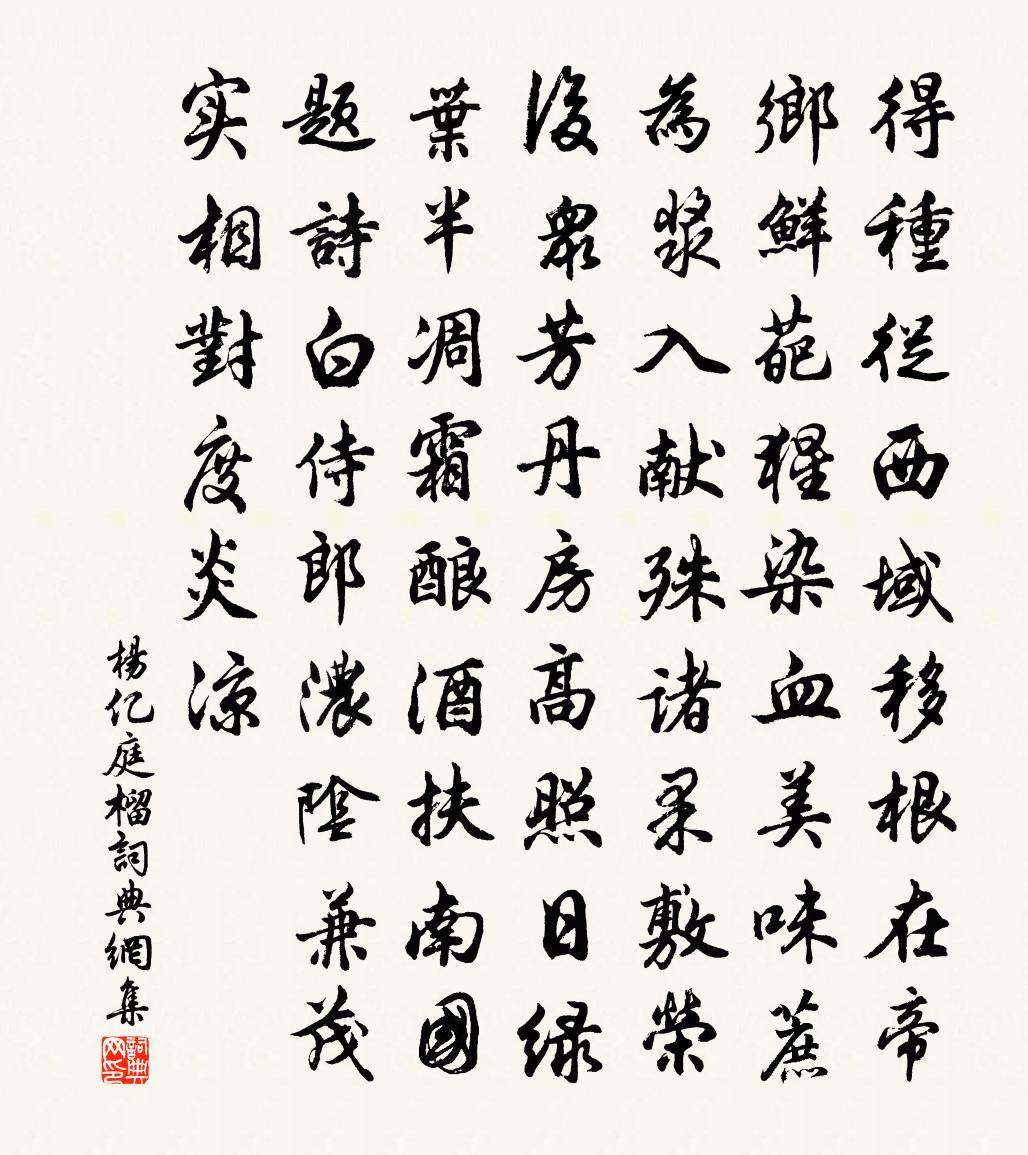 得種從西域移根在帝
鄉鮮葩猩染血美味蔗
為漿入献殊诸果敷榮
後衆芳丹房高照日緑
葉半凋霜酿酒扶南國
题詩白侍郎濃陰兼茂
实相對度炎凉
楊亿庭榴詞典網集
詞典网印